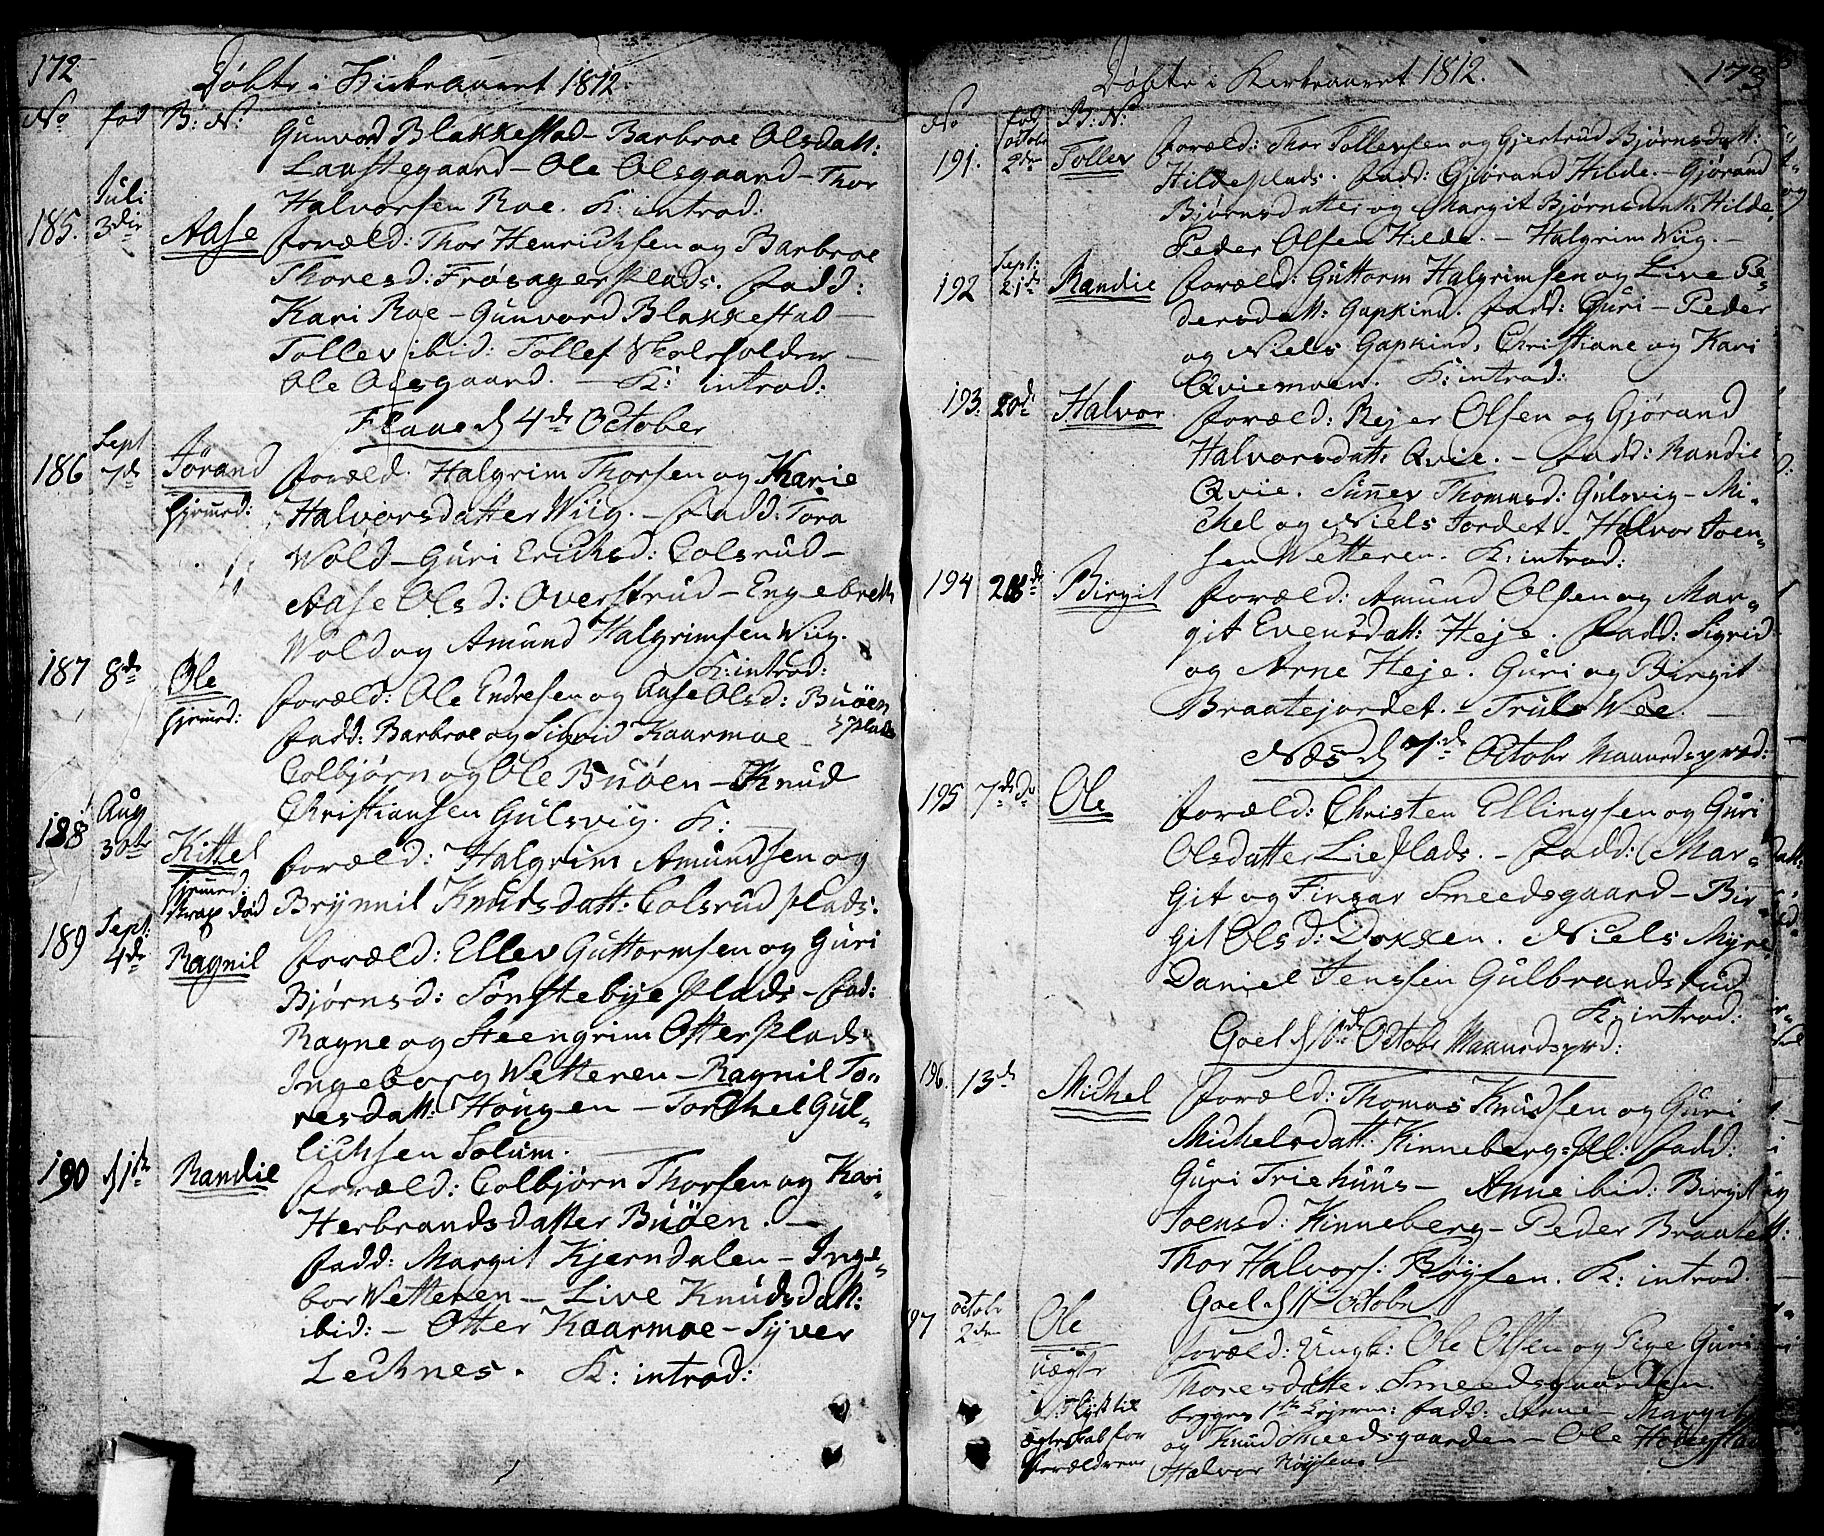 172
Døbte i Kirkeaaret 1812.
No fød B: N:
Gunvord Blakkestad - Barbroe Olsdatt:
Laustegaard - Ole Olsgaard - Thor
Halvorsen Roe. K: introd:
185. Juli 3die Aase foræld: Thor Henrichsen og Barbroe
Thoresd: Frøsager Plads. fadd:
Kari Roe - Gunvord Blakkestad -
Tollev ibid: Tollef Skoleholder -
Ole Olsgaard. - K: introd:
Flaae d 4de October
186 Sept 7de Jørand foræld. Halgrim Thorsen og Karie
hjemed: Halvorsdatter Wiig. - Fadd: Tora
Wold - Guri Erichsd: Colsrud -
Aase Olsd: Overstrud - Engebreth
Wold og Amund Halgrimsen Wiig.
K: introd:
187 8de Ole foræld: Ole Endresen og Aase Olsd: Buøen
hjemed: fadd: Barbroe og Sigrid Kaarmoe - Plads
Colbjørn og Ole Buøen - Knud
Christiansen Gulsvig. K:
188 Aug 30te Kittel foræld: Halgrim Amundsen og
hjemed. strax død Brynnil Knudsdatt: Colsrud Plads.
189 Sept: 4de Ragnil foræld: Ellev Guttormsen og Guri
Bjørnsd: Sønstebye Plads - Fad:
Ragne og Steengrim Otter Plads
Ingeborg Wetteren - Ragnil To-
resdatt: Hougen - Torchel Gul-
lichsen Solum.
190 d 1te Randie foræld: Colbjørn Thorsen og Kari
Herbrandsdatter Buøen. -
fadd: Margit Kjerndalen - Inge-
bor Wetteren - Live Knudsdatt:
ibid: - Otter Kaarmoe - Syver
Lechnes. K: introd:
Døbte i Kirkeaaret 1812. 173
No fød B: N:
191. Octobr 2den Tollev foræld: Thor Tollevsen og Gjertrud Bjørnsdatt:
Hilde Plads. Fadd: Gjørand Hilde. - Gjørand
Bjørnsdatter og Margit Bjørnsdatt: Hilde.
Peder Olsen Hilde. - Halgrim Wiig. -
192 Sept: 21de Randie foræld: Guttorm Halgrimsen og Live Pe-
dersdatt: Gapkind. fadd: Guri - Peder
og Niels Gapkind, Christiane og Kari
Qviemoen. K: introd:
193. 20de Halvor foræld: Rejer Olsen og Gjørand
Halvorsdatt: Qvie. - Fadd: Randie
Qvie. Sunnev Thomasd: Gulsvig - Mi-
chel og Niels Jordet - Halvor Joen-
sen Wetteren. K: introd:
194 28de Birgit foræld: Amund Olsen og Mar-
git Evensdatt: Heje. Fadd: Sigrid
og Arne Heje. Guri og Birgit
Braatejordet. - Truls Wee. -
Næs d 7de Octobr Maanedspræd:
195 7de do Ole foræld: Christen Ellingsen og Guri
Olsdatter Lie Plads. - Fadd: Mar-
git og Fingar Smeedsgaard - Bir-
git Olsd: Dokken. Niels Myre
Daniel Jenssen Gulbrandsrud
K: introd:
Goel d Octobr Maanedspræd:
196. 13de Michel foræld: Thomas Knudsen og Guri
Michelsdatt: Kinneberg Pl: fadd:
Guri Triehuus - Anne ibid: Birgit
Joensd: Kinneberg - Peder Braaten
Thor Halvors: Røysen. K: introd.
Goel d 11 Octobr
197 Octobr 2den Ole foræld: Ungk: Ole Olsen og Pige Guri
uægte Thoresdatter Smeedsgaarden.
begges 1te Lejerm: fadd: Anne - Margit
ægteskab for og Knud Smeedsgaarden - Ole
forældrene Halvor Røysen. -